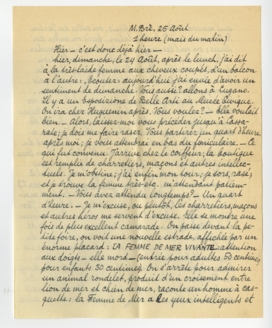 M. Brè, 25 Août
1 heure (mais du matin)
Hier - c'est donc déjà hier -
hier, dimanche, le 24 Août, après le lunch, j'ai dit
à la très laide femme aux cheveux coupés, d'un balcon
à l'autre: "Ecoutez: aujourd'hui j'ai envie d'avoir un
sentiment de dimanche. Vous aussi? allons à Lugano.
Il y a un exposizione de Belle Arti au Musée Civique.
On ira chez Huguenin après. Vous voulez? - Elle voulait
bien. - Alors, laissez-moi vous précéder jusqu'à Lassa-
rate; je dois me faire raser. Vous partirez un quart d'heure
après moi; je vous attendrai en bas du funiculaire. - Ce
qui fut convenu. J'arrive chez le coiffeur: la boutique
est remplie de charretiers, maçons et autres intellec-
tuels. Je m'obstine; j'ai enfin mon tour; je sors, rasé;
et je trouve la femme très laide m'attendant patiem-
ment. - Vous avez attendu longtemps? - Un quart
d'heure. - Je m'excuse, ou plutôt, les charretiers, maçons
et autres héros me servent d'excuse. Elle se montre une
fois de plus excellent camarade. On passe devant la pe-
tite foire, on voit une nouvelle estrade, affichée par un
énorme placard: LA FEMME DE MER VIVANTE - attention
aux doigts - elle mord - (entrée pour adultes 50 centimes,
pour enfants 30 centimes. On s'arrête pour admirer
un animal rondelet, produit d'un croisement entre
lion de mer et chien de mer, raconte un homme à cas-
quette: la Femme de Mer a les yeux intelligents et